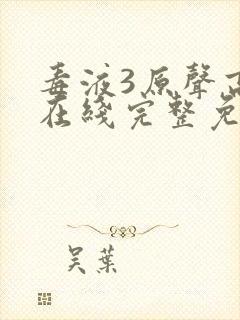 毒液3原聲
在綫完整免
吴葉